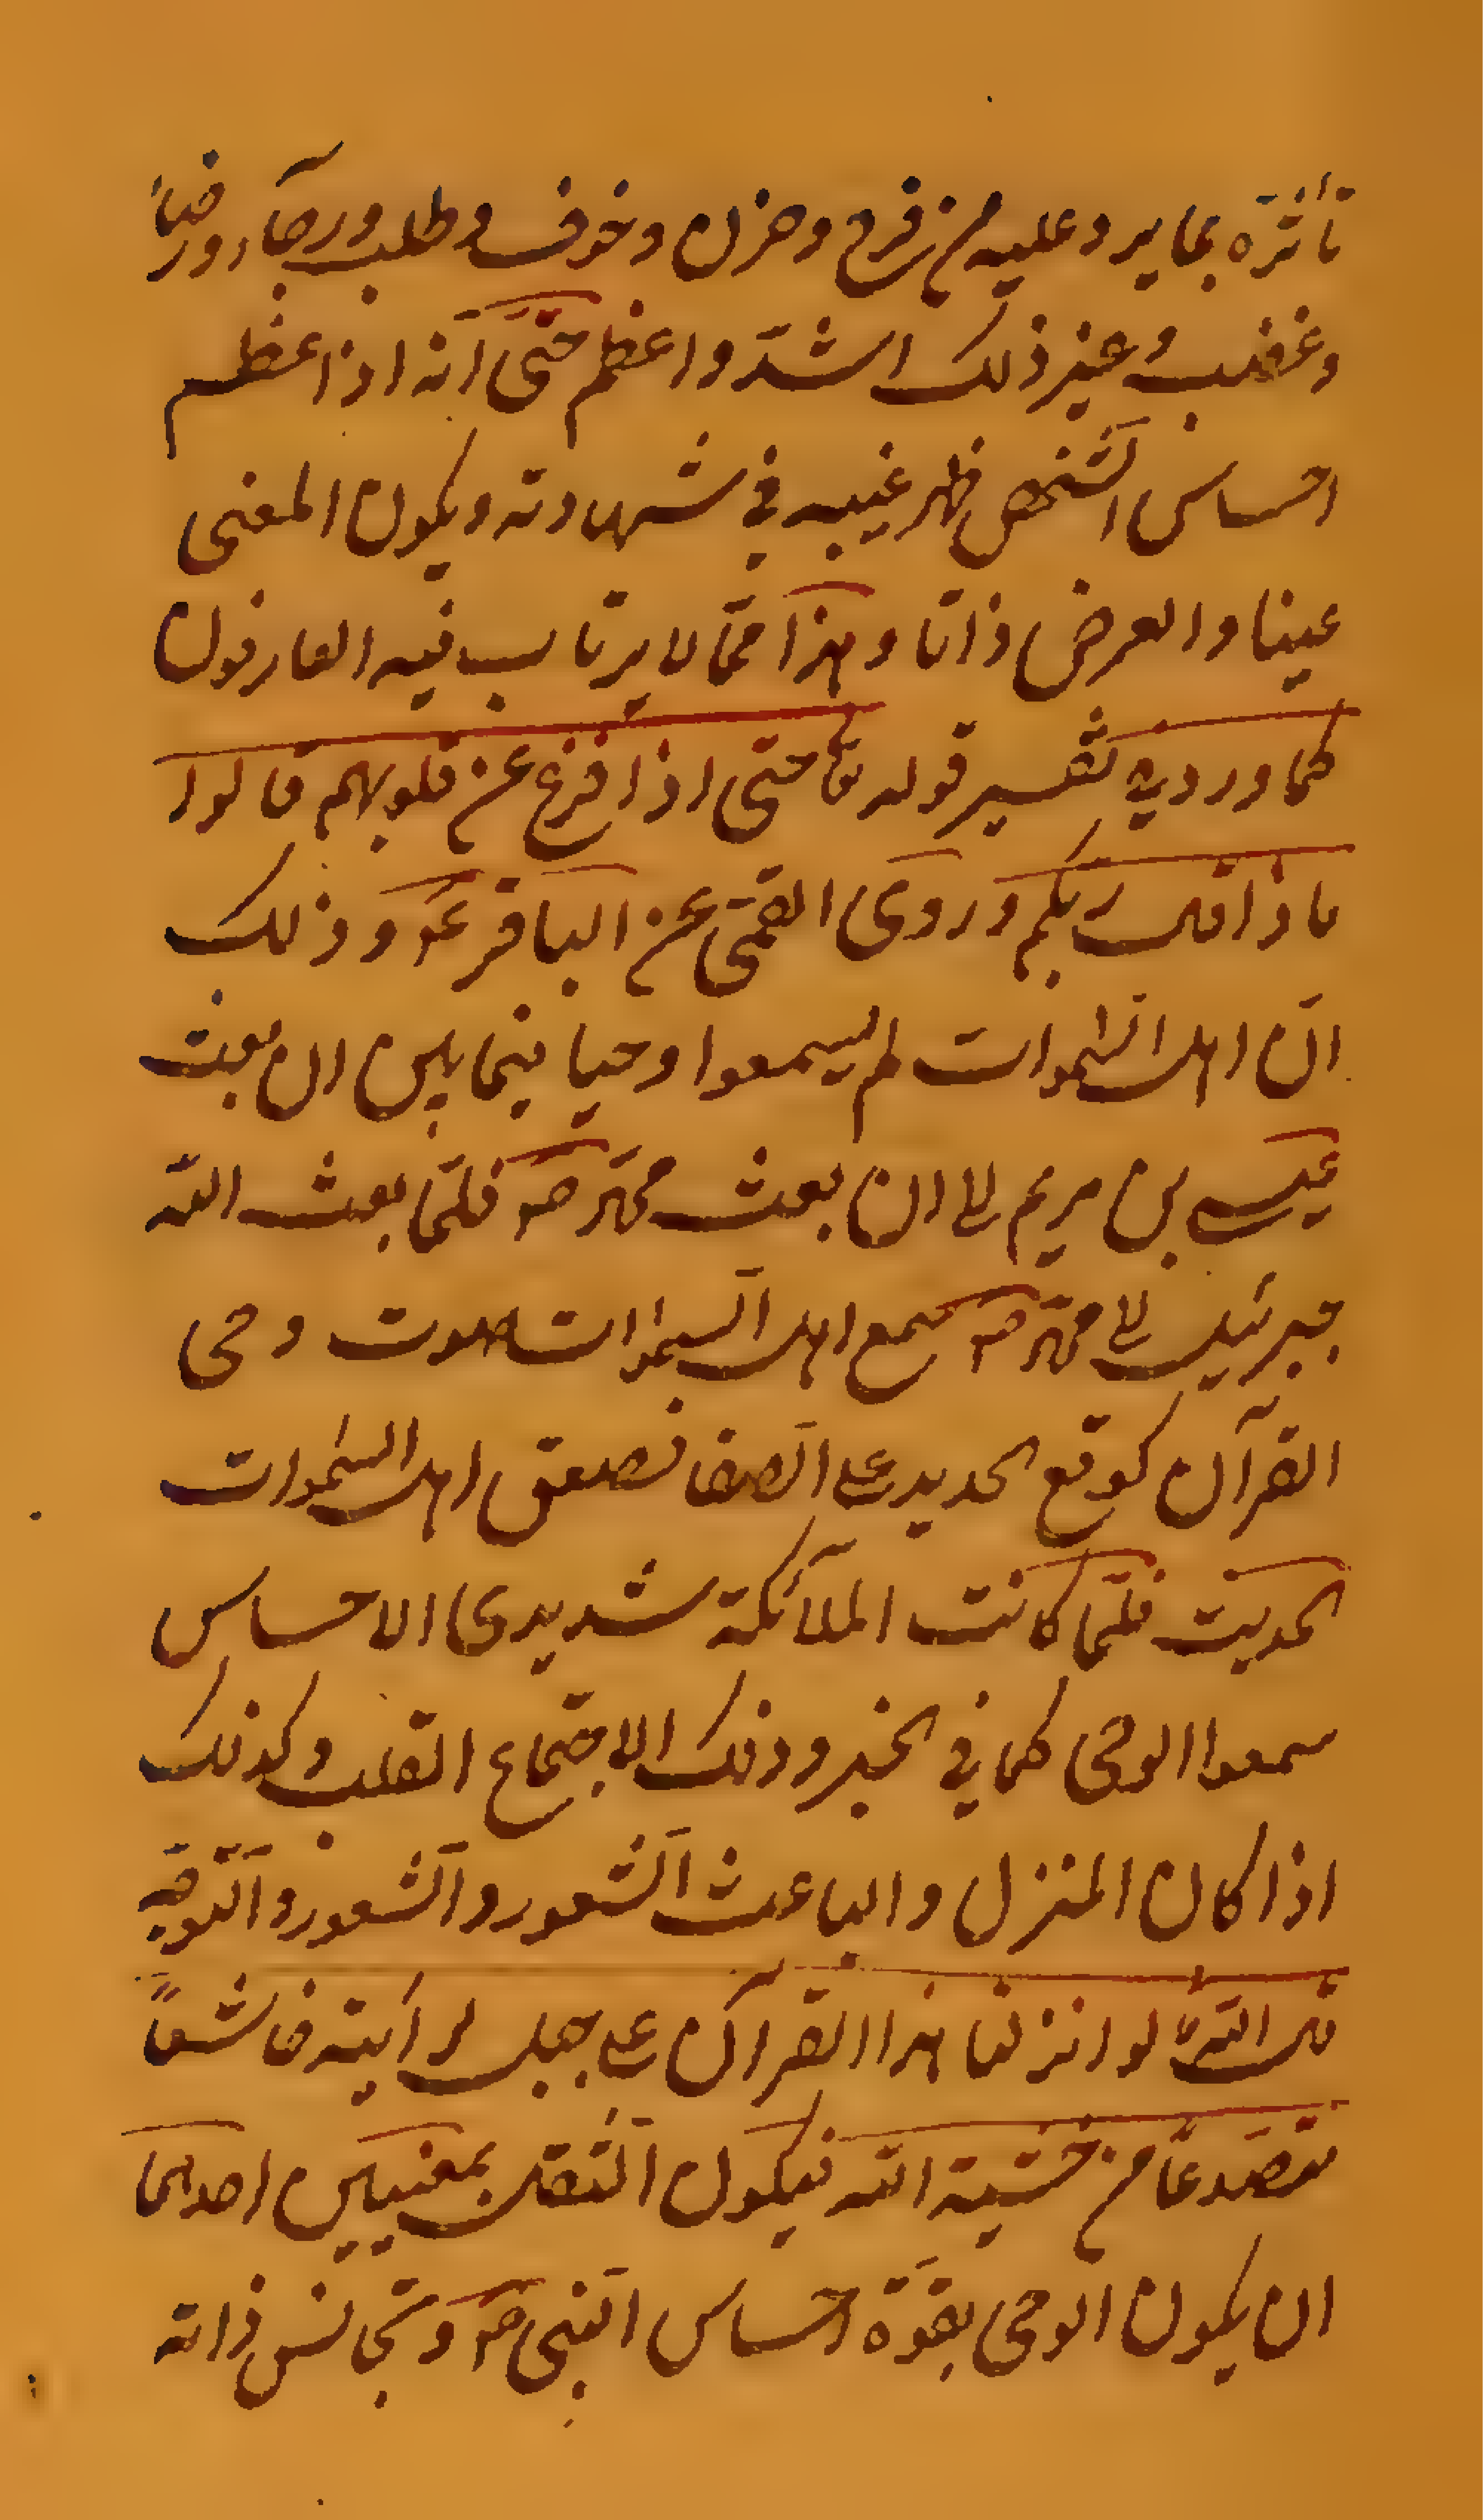 تأثّره بما يرد عليه من فرح وحزن وخوف وطلب ورجآء ورضاً
وغضب وغير ذلك اشدّ واعظم حتّى انّه اذا عظم
احساس الشّخص ظهر غيبه في شهادته ويكون المعنى
عينا والعرض ذاتا وهذا ممّا لا يرتاب فيه العارفون
كما ورد في تفسير قوله تعا حتى اذا فزع عن قلوبهم قالوا
ماذا قال ربكم وروى القمّى عن الباقر عم وذلك
انّ اهل السّموات لم يسمعوا وحيا فيما بين ان بعث
عيسى بن مريم الى ان بعث محمّد ص فلمّا بعث اللّه
جبرئيل الى محمّد ص سمع اهل السّموات صوت وحى
القرآن كوقع الحديد على الصّفا فصعق اهل السّموات
الحديث فلمّا كانت الملآئكة شديدى الاحساس
سمعوا الوحى كما في الخبر وذلك لاجتماع القلب وكذلك
اذا كان المنزل والباعث الشّعور والشّعور والتّوجّه
قال اللّه تع لو انزلنا هذا القرآن على جبل لرأيته خاشعاً
متصدّعاً من خشية اللّه فيكون الثّقل بمعنيين احدهما
ان يكون الوحى بقوّة احساس النّبي ص وتجانس ذاته